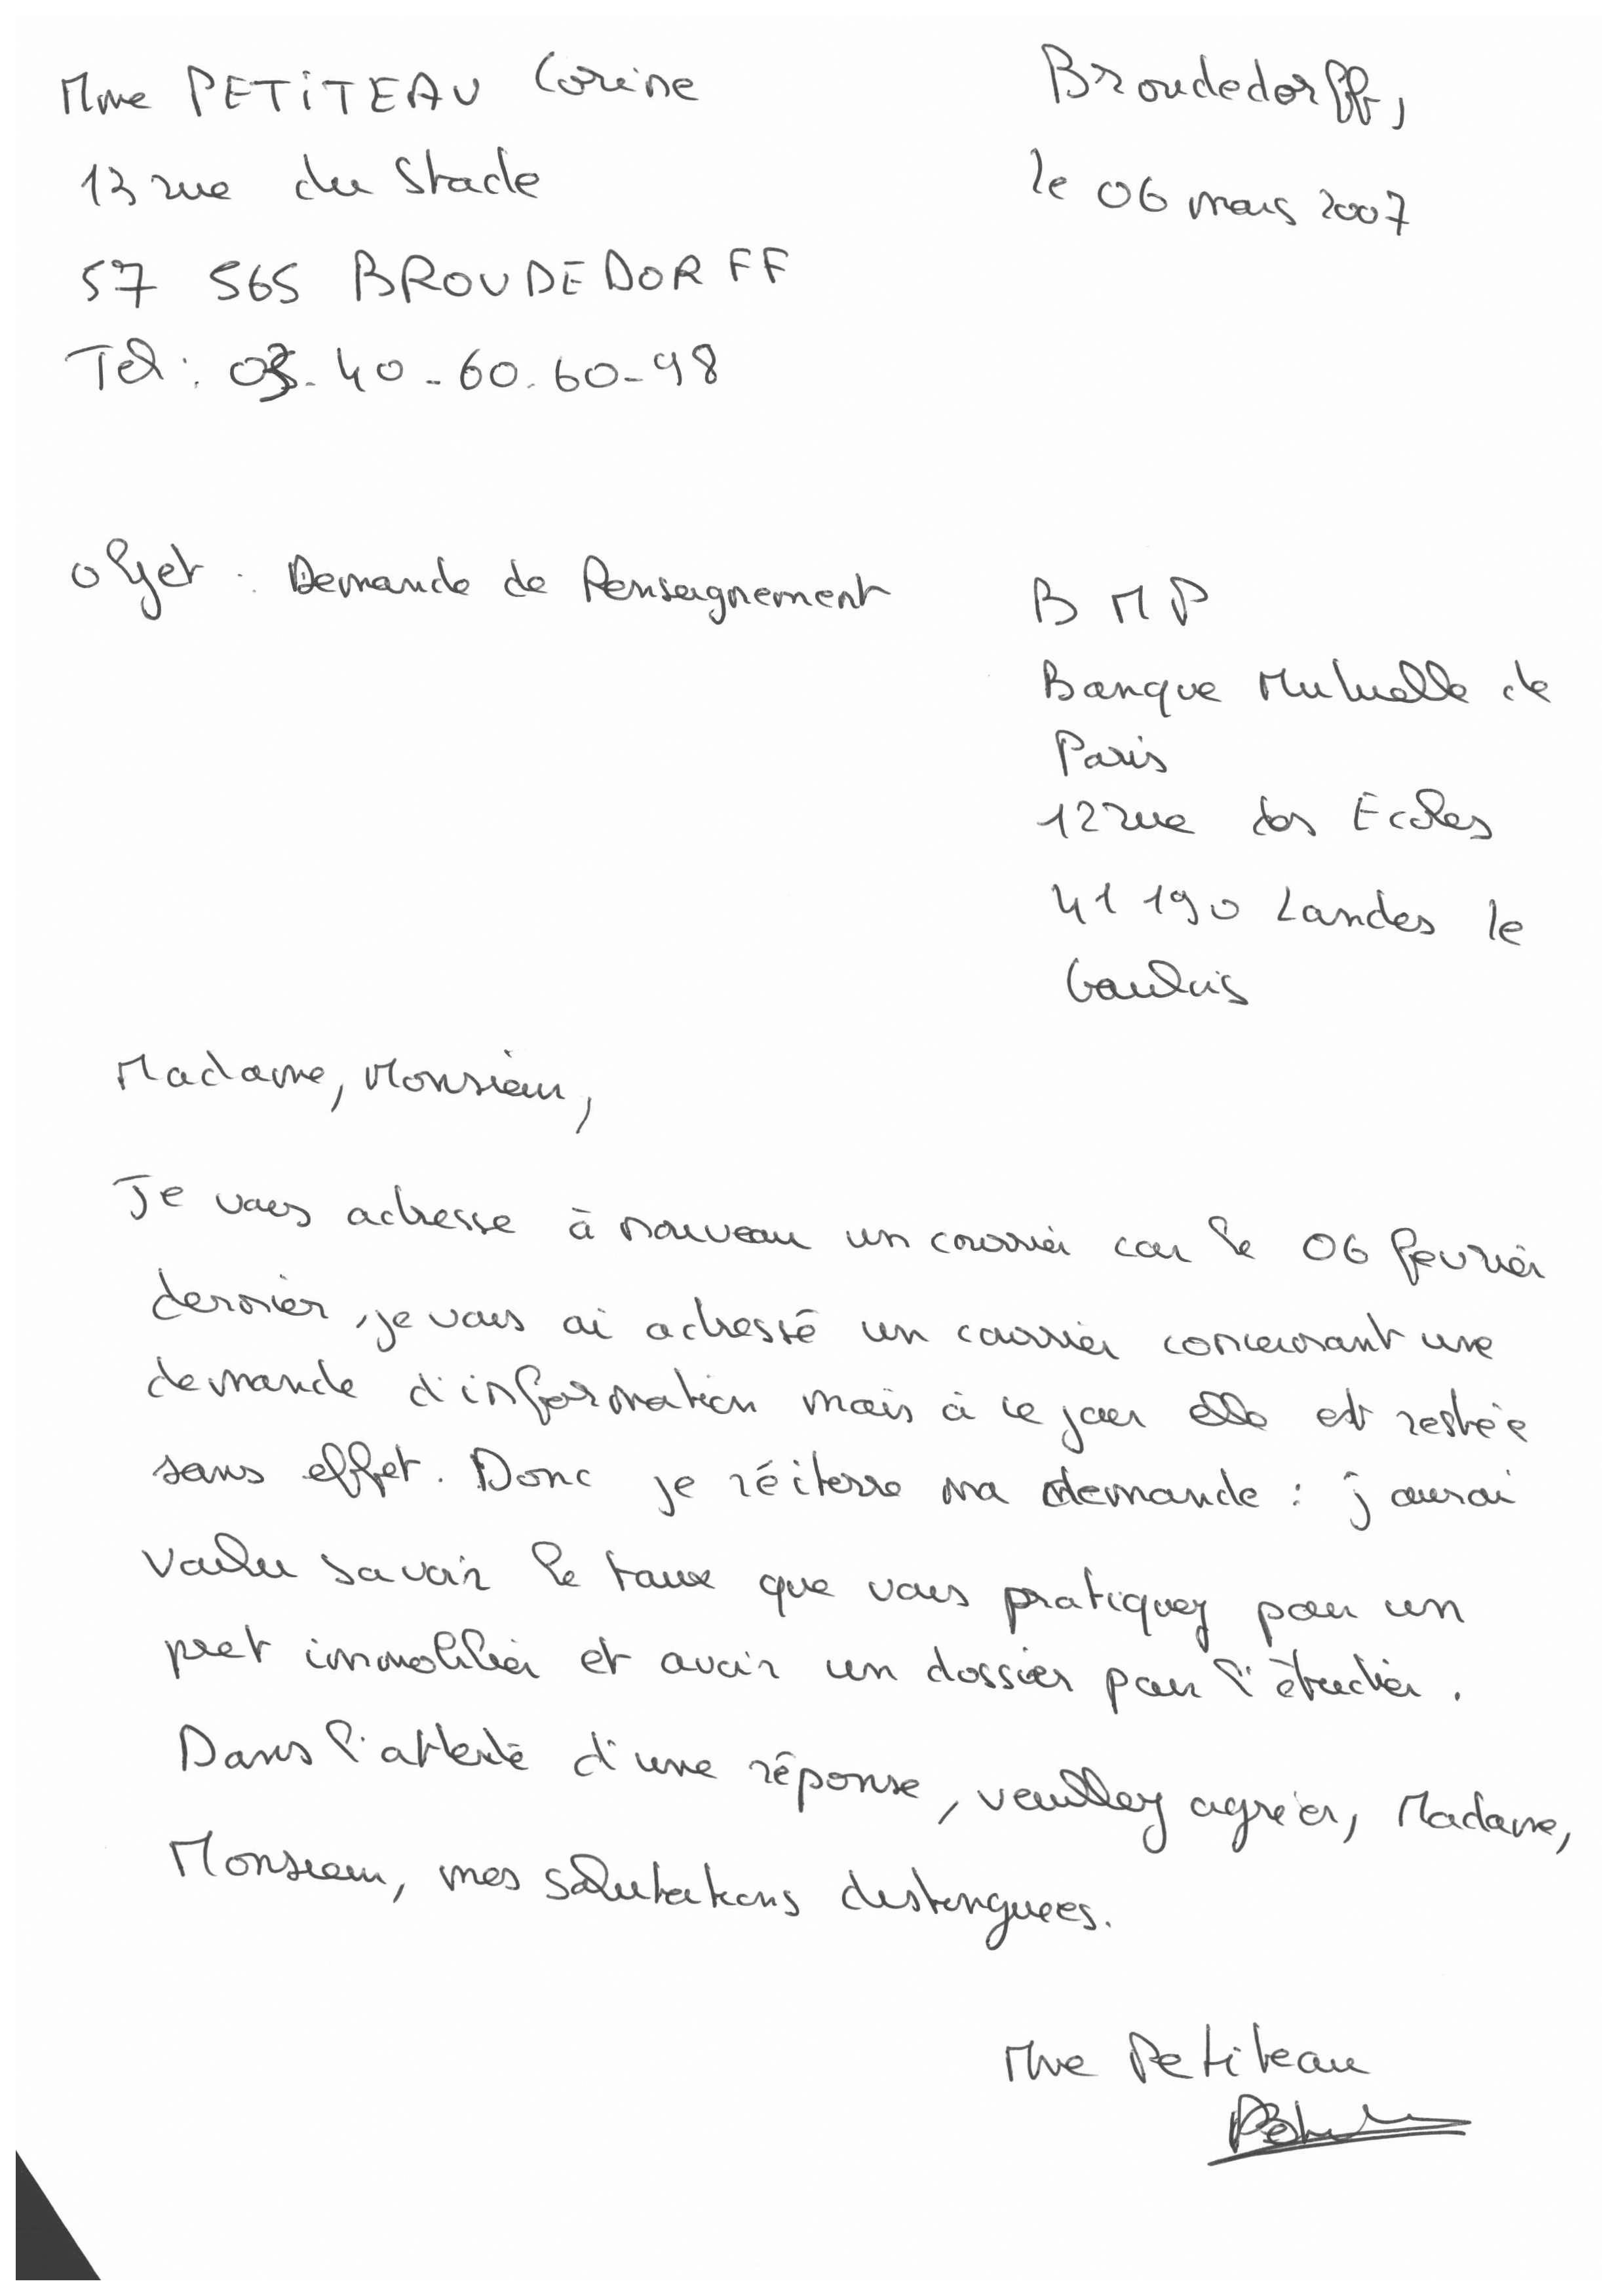 Mme PETITEAU Corine
13 rue du Stade
57 565 BROUDEDORFF
Tel : 03.40-60.60-98
Broudedorff,
le 06 mars 2007
objet : Demande de Renseignement
B M P
Banque Mutuelle de
Paris
12 rue des Ecoles
41 190 Landes le
Gaulois
Madame, Monsieur,
Je vous adresse à nouveau un courrier car le 06 fevrier
dernier, je vous ai adressé un courrier concernant une
demande d'information mais à ce jour elle est restée
sans effet. Donc je réiterre ma demande : j aurai
voulu savoir le taux que vous pratiquez pour un
pret immobilier et avoir un dossier pour l'étudier.
Dans l'attente d'une réponse, veuillez agréer, Madame,
Monsieur, mes salutations distinguees.
Mme Petiteau